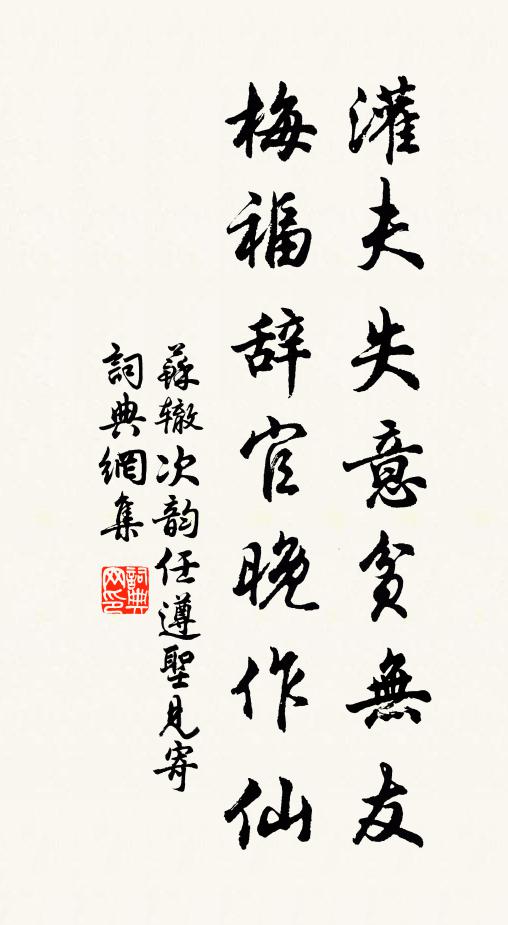 灌夫失意貧無友
梅福辞官晚作仙
蘇辙次韵任遵聖見寄
詞典網集
詞典网印